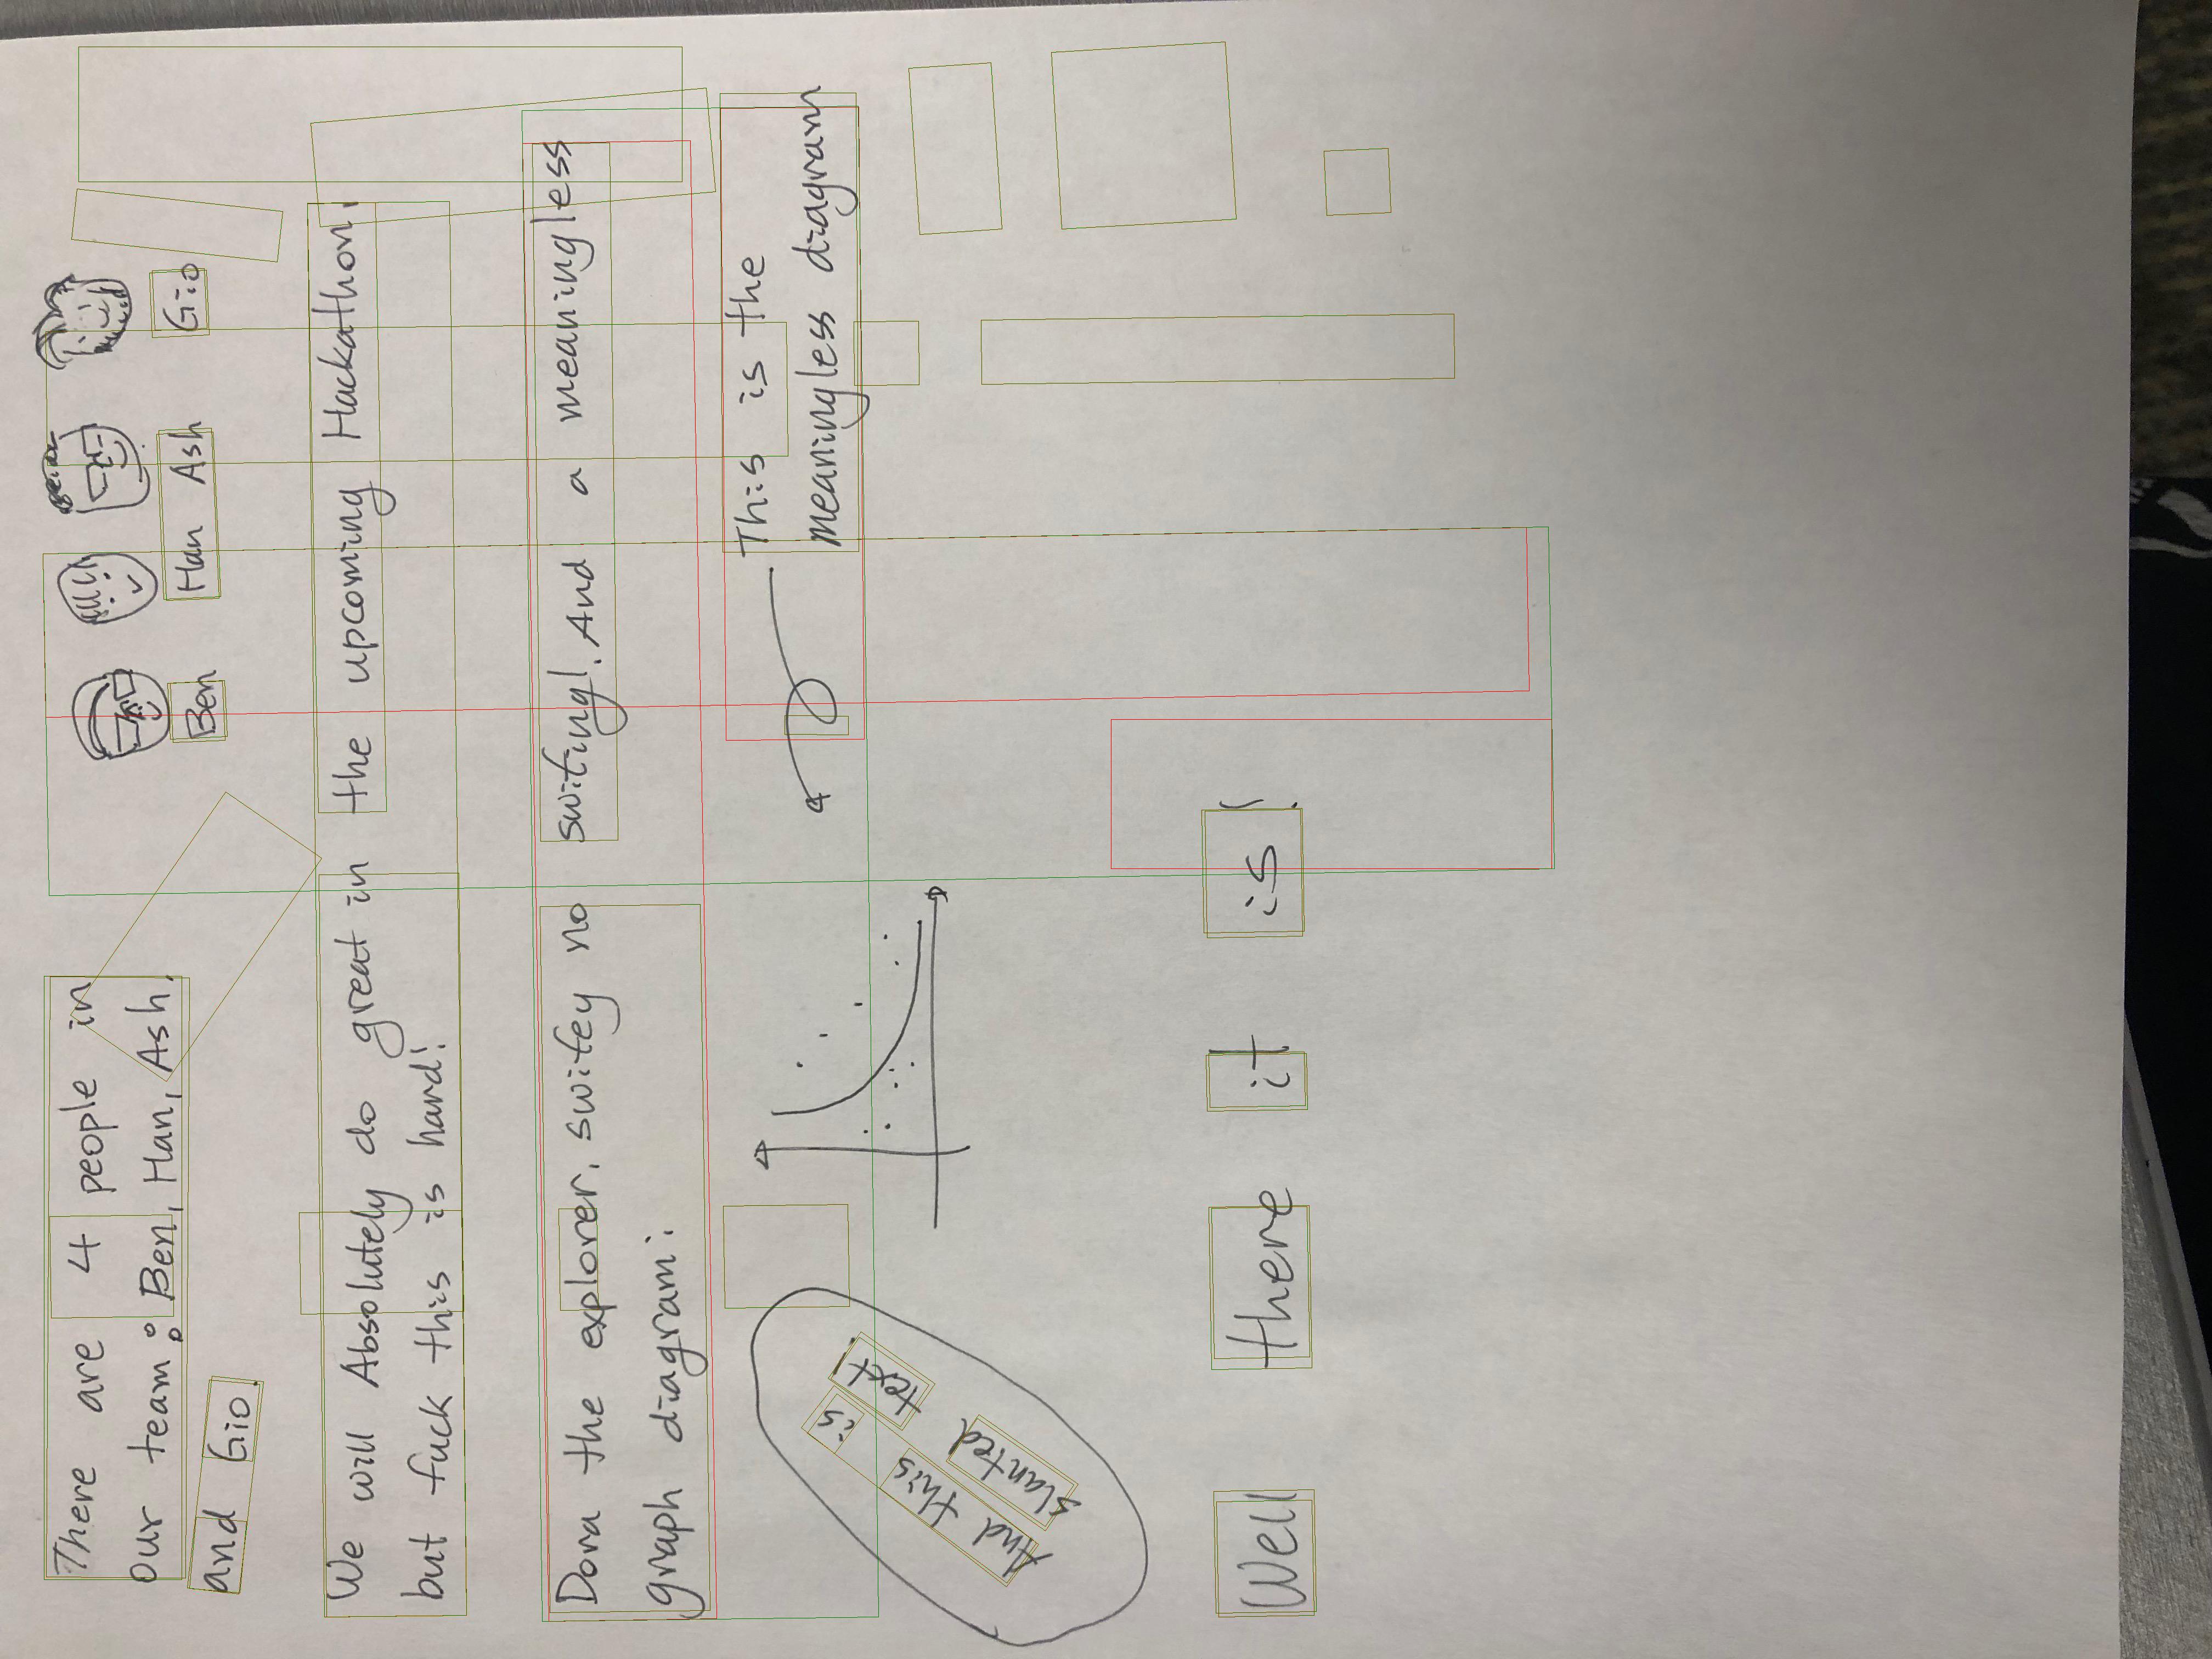 There are 4 people in
our team: Ben, Han, Ash,
and Gio.
Ben Han Ash Gio
We will Absolutely do great in the upcoming Hackathon,
but fuck this is hard!
Dora the explorer, swifey no switing! And a meaningless
graph diagram:
This is the
meaningless diagram
And this is
slanted text
Well there it is!